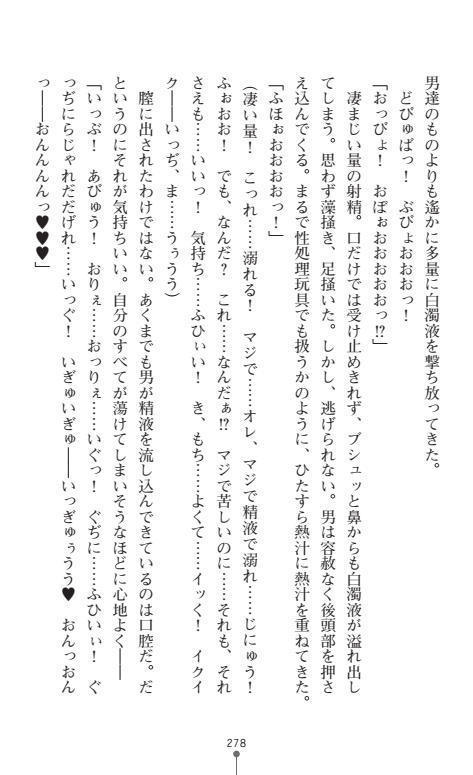 男達のものよりも遙かに多量に白濁液を撃ち放ってきた。
どぴゅばっ！　ぶぴょおおおっ！
「おっぴょ！　おぼぉおおおおおっ!?」
凄まじい量の射精。口だけでは受け止めきれず、ブシュッと鼻からも白濁液が溢れ出し
てしまう。思わず藻掻き、足掻いた。しかし、逃げられない。男は容赦なく後頭部を押さ
え込んでくる。まるで性処理玩具でも扱うかのように、ひたすら熱汁に熱汁を重ねてきた。
「ふほぉおおおおっ！」
（凄い量！　こっれ……溺れる！　マジで……オレ、マジで精液で溺れ……じにゅう！
ふぉおお！　でも、なんだ？　これ……なんだぁ!?　マジで苦しいのに……それも、それ
さえも……いいっ！　気持ち……ふひぃい！　き、もち……よくて……イッく！　イクイ
ク――いっぢ、ま……うぅうう）
膣に出されたわけではない。あくまでも男が精液を流し込んできているのは口腔だ。だ
というのにそれが気持ちいい。自分のすべてが蕩けてしまいそうなほどに心地よく――
「いっぶ！　あびゅう！　おりぇ……おっりぇ……いぐっ！　ぐぢに……ふひいぃ！　ぐ
っぢにらじゃれだだげれ……いっぐ！　いぎゅいぎゅ――いっぎゅぅうう♥　おんっおん
っ――おんんんんっ♥♥♥」
278